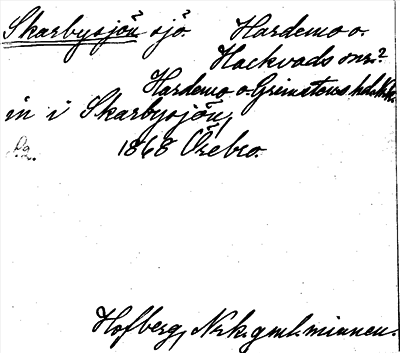 Skarbysjön sjö. Hardemo o.
Hackvads snr?
Hardemo o Grimstens hd
in i Skarbysjön,
1868 Örebro.
Hofberg, Nrk. gml. minnen.